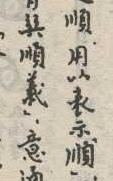 順用以表示順
順義、意